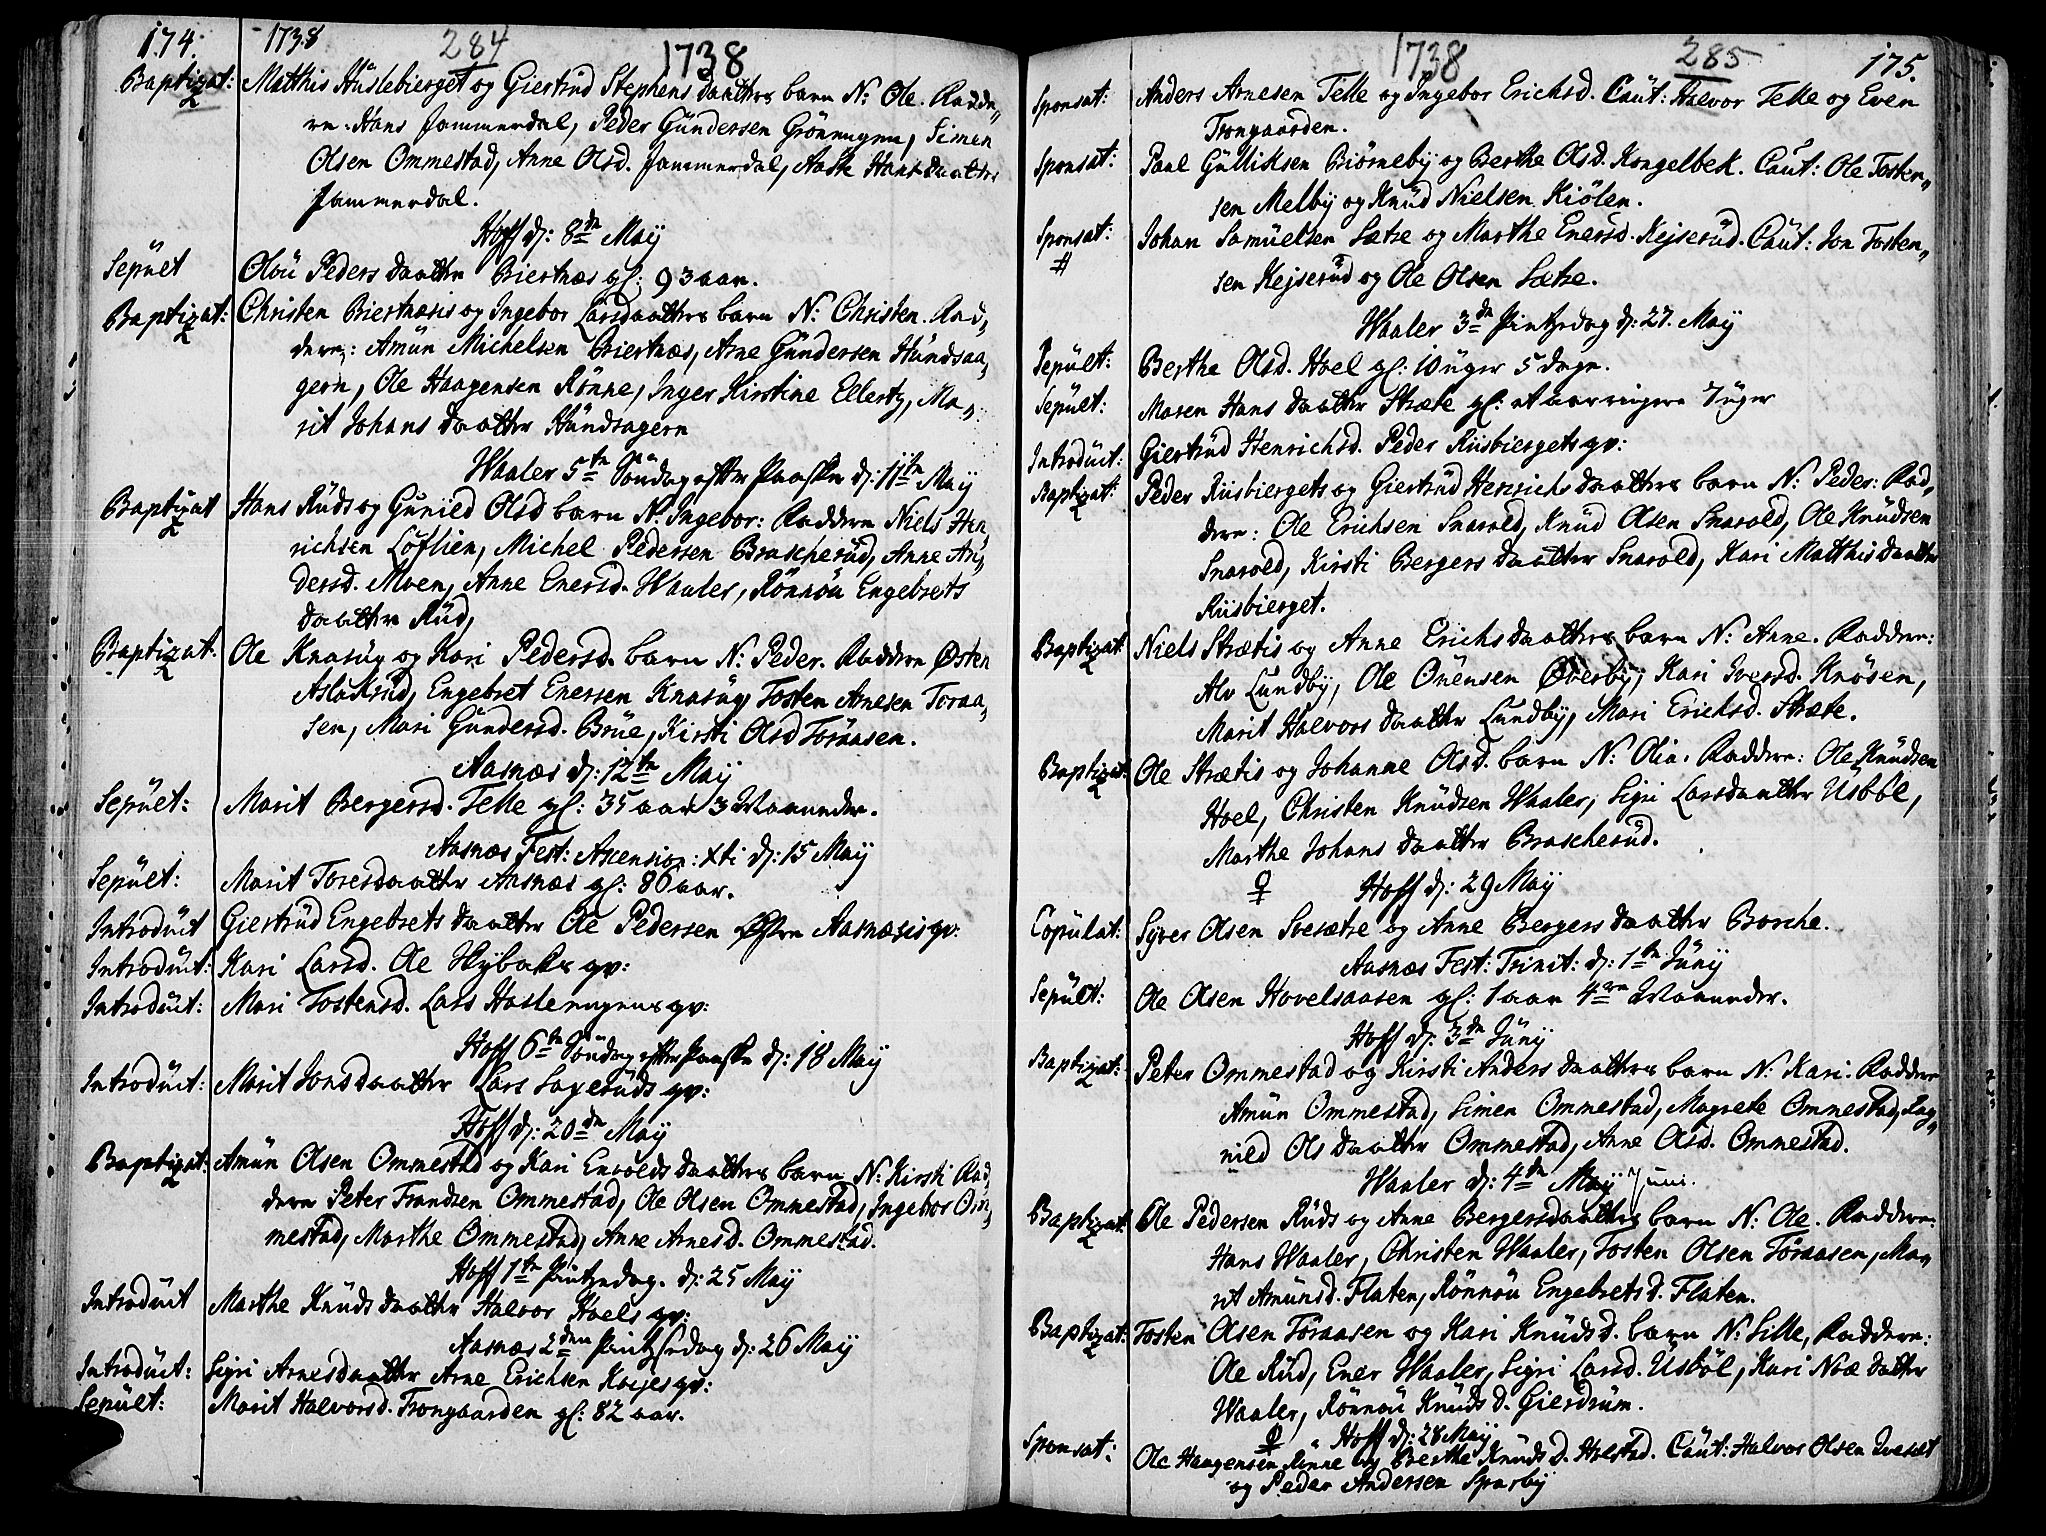 174. 1738 284 1738
Baptizat: Matthis Huslebierget og Giertrud Stephens daatters barn N: Ole. Fadde„
re. Hans Jammerdal, Peder Gundersen Grönnugen, Simen
Olsen Ommestad, Anne Olsd. Jammerdal, Aaste Hans daatter
Jammerdal.
Hoff d: 8de May
Sepult Olou Peders daatter Biertnæs gl: 93 aar.
Baptizat: Christen Biertnæsis og Ingebor Larsdaatters barn N: Christen. Fad„
dere: Amun Michelsen Biertnæs, Arne Gundersen Hundsaa„
gern, Ole Haagensen Rönne, Inger Kirstine Ellertz, Ma„
rit Johans daatter Hundsagern
Waaler 5te Söndag efter Paaske d: 11te May
Baptizat Hans Ruds og Gunied Olsd barn N: Ingebor: Faddere Niels Hen„
richsen Löflien, Michel Pedersen Brascherud, Anne An„
dersd. Moen, Anne Enersd. Waaler, Rönnöu Engebrets
daatter Rud,
Baptizat. Ole Knasug og Kari Pedersd. barn N: Peder. Faddere Østen
Aslakrud, Engebret Enersen Knasug, Tosten Arnesen Toraa„
sen, Mari Gundersd. Brue, Kirsti Olsd Toraasen.
Aasnæs d: 12te May
Sepult: Marit Bergersd. Telle gl: 35 aar 3 Maaneder.
Aasnæs Fest: Ascension: Xti d: 15 May
Sepult: Marit Toresdaatter Aasnæs gl: 86 aar.
Introduit Giertrud Engebrets daatter Ole Pedersen Østre Aasnæsis qv:
Introduit: Kari Larsd. Ole Skybaks qv:
Introduit: Mari Tostensd. Lars Hastenugens qv:
Hoff 6te Söndag efter Paaske d: 18 May
Introduit: Marit Jonsdaatter Lars Sageruds qv:
Hoff d: 20de May
Baptizat: Amun Olsen Ommestad og Kari Envolds daatters barn N: Kirsti Fad„
dere Peter Frandsen Ommestad, Ole Olsen Ommestad, Ingebor Om„
mestad, Marthe Ommestad, Anne Arnesd. Ommestad.
Hoff 1te Pintzedag. d: 25 May
Introduit Marthe Knuds daatter Halvor Hoels qv:
Aasnæs 2den Pintzedag d: 26 May
Introduit: Sigri Arnesdaatter Arne Erichsen Kojes qv:
Sepult: Marit Halvorsd. Trongaarden gl: 82 aar.
1738 285 175.
Sponsat: Anders Arnesen Telle og Ingebor Erichsd. Caut: Halvor Telle og Even
Trongaarden.
Sponsat: Paul Gulliksen Biörneby og Berthe Olsd. Kongelbek. Caut: Ole Tosten„
sen Melby og Knud Nielsen Kiölen.
Sponsat: Johan Samuelsen Sætre og Marthe Enersd. Kejserud. Caut: Jon Tosten„
# sen Kejserud og Ole Olsen Sætre.
Waaler 3de Pintzedag d: 27. May
Sepult: Berthe Olsd. Hoel gl: 10 uger 5 dage.
Sepult: Maren Hans daatter Stræte gl: et aar ringere 7 uger
Introduit: Giertrud Henrichsd. Peder Riisbiergets qv:
Baptizat: Peder Riisbiergets og Giertrud Henrichs daatters barn N: Peder: Fad„
dere: Ole Erichsen Snarold, Knud Olsen Snarold, Ole Knudsen
Snarold, Kirsti Bergers daatter Snarold, Kari Matthis daatter
Riisbierget.
Baptizat Niels Strætis og Anne Erichs daatters barn N: Anne. Faddere:
Alv Lundby, Ole Onensen Øverby, Kari Iversd. Knösen,
Marit Halvors daatter Lundby, Mari Erichsd. Stræte.
Baptizat: Ole Strætis og Johanne Olsd. barn N: Olia. Faddere: Ole Knudsen
Hoel, Christen Knudsen Waaler, Sigri Larsdaatter Usböl,
Marthe Johans daatter Brascherud.
♀ Hoff d: 29 May
Copulat: Syver Olsen Svesætre og Anne Bergers daatter Borche.
Aasnæs Fest: Trinit: d: 1te Juny
Sepult: Ole Olsen Hovelsaasen gl: 1 aar 4re Maaneder.
Hoff d: 3de Juny
Baptizat: Peter Ommestad og Kirsti Anders daatters barn N: Kari. Faddere
Amun Ommestad, Simen Ommestad, Magrete Ommestad, Rag„
nild Ols daatter Ommestad, Anne Olsd. Ommestad.
Waaler d: 4de May Juni.
Baptizat: Ole Pedersen Ruds og Anne Bergersdaatters barn N: Ole. Faddere:
Hans Waaler, Christen Waaler, Tosten Olsen Töraasen, Ma„
rit Amunsd. Flaten, Rönnöu Engebretsd. Flaten.
Baptizat: Tosten Olsen Töraasen og Kari Knudsd. barn N: Sille, Faddere:
Ole Rud, Ener Waaler, Sigri Larsd. Usböl, Kari Noe datter
Waaler, Rönnou Knudsd. Gierdrum.
♀ Hoff d: 28 May
Sponsat: Ole Haagensen Rönne og Berthe Knudsd. Holstad. Caut: Halvor Olsen Svesæt
og Peder Andersen Sparby